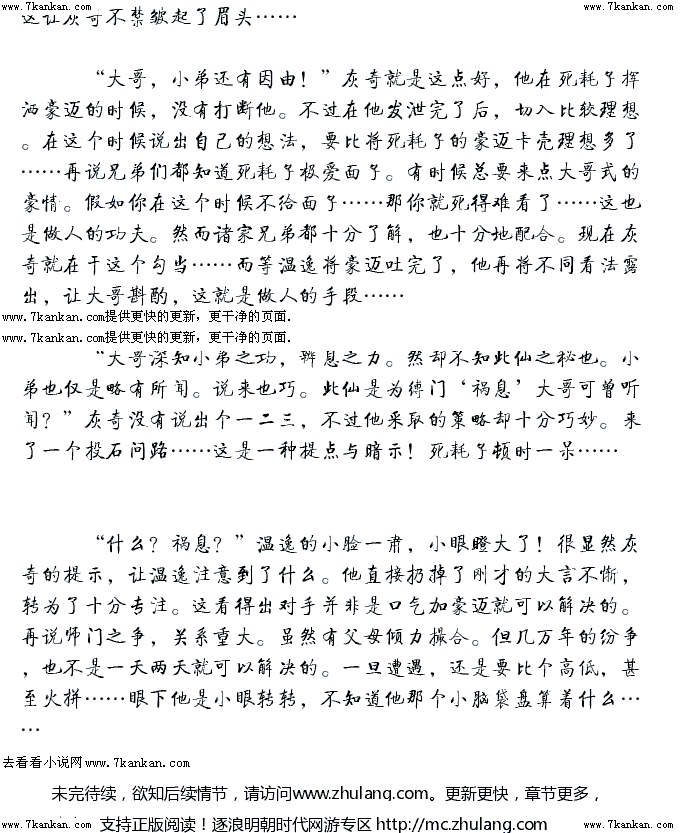 www.7kankan.com www.7kankan.com
这让灰奇不禁皱起了眉头……
“大哥，小弟还有因由！”灰奇就是这点好，他在死耗子挥
洒豪迈的时候，没有打断他。不过在他发泄完了后，切入比较理想
。在这个时候说出自己的想法，要比将死耗子的豪迈卡壳理想多了
……再说兄弟们都知道死耗子极爱面子。有时候总要来点大哥式的
豪情。假如你在这个时候不给面子……那你就死得难看了……这也
是做人的功夫。然而诸家兄弟都十分了解，也十分地配合。现在灰
奇就在干这个勾当……而等温逸将豪迈吐完了，他再将不同看法露
出，让大哥斟酌，这就是做人的手段……
www.7kankan.com提供更快的更新，更干净的页面.
www.7kankan.com提供更快的更新，更干净的页面.
“大哥深知小弟之功，辨息之力。然却不知此仙之秘也。小
弟也仅是略有所闻。说来也巧。此仙是为缚门‘祸息’大哥可曾听
闻？”灰奇没有说出个一二三，不过他采取的策略却十分巧妙。来
了一个投石问路……这是一种提点与暗示！死耗子顿时一呆……
“什么？祸息？”温逸的小脸一肃，小眼瞪大了！很显然灰
奇的提示，让温逸注意到了什么。他直接扔掉了刚才的大言不惭，
转为了十分专注。这看得出对手并非是口气加豪迈就可以解决的。
再说师门之争，关系重大。虽然有父母倾力撮合。但几万年的纷争
，也不是一天两天就可以解决的。一旦遭遇，还是要比个高低，甚
至火拼……眼下他是小眼转转，不知道他那个小脑袋盘算着什么…
…
去看看小说网www.7kankan.com
未完待续，欲知后续情节，请访问www.zhulang.com。更新更快，章节更多，
www.7kankan.com 支持正版阅读！逐浪明朝时代网游专区 http://mc.zhulang.com www.7kankan.com